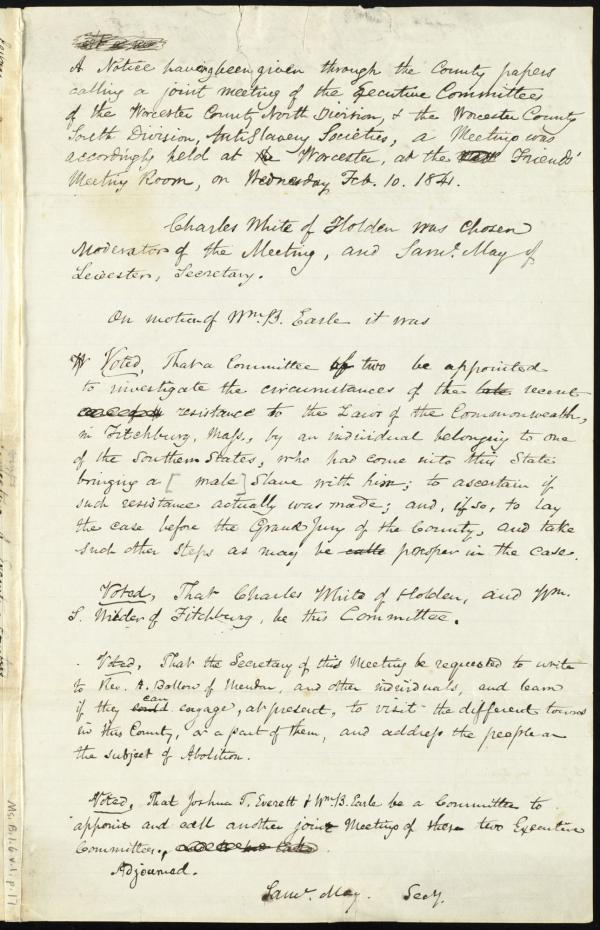 A Notice having been given through the County papers
calling a joint meeting of the Executive Committee
of the Worcester County North Division, & the Worcester County
South Division, AntiSlavery Societies, a Meeting was
accordingly held at the Worcester, at the Friends'
Meeting Room, on Wednesday Feb. 10. 1841.
Charles White of Holden was chosen
Moderator of the Meeting, and Saml. May of
Leicester, Secretary.
On motion of Wm. B. Earle it was
Voted, That a Committee of two be appointed
to investigate the circumstances of the late recent
resistance to the Laws of the Commonwealth,
in Fitchburg, Mass., by an individual belonging to one
of the Southern States, who had come into this State
bringing a [ male] Slave with him; to ascertain if
such resistance actually was made; and, if so, to lay
the case before the Grand Jury of the County, and take
such other steps as may be proper in the case.
Voted, That Charles White of Holden, and Wm.
S. Wilder of Fitchburg, be this Committee.
Voted, That the Secretary of this Meeting be requested to write
to Rev. A. Ballou of Mendon, and other individuals, and learn
if they could can engage, at present, to visit the different towns
in this County, or a part of them, and address the people on
the subject of Abolition.
Voted, That Joshua T. Everett & Wm. B. Earle be a Committee to
appoint and call another joint Meeting of these two Executive
Committees.
Adjourned.
Saml. May. Secy.
Ms. B.1.6 v.1, p.17